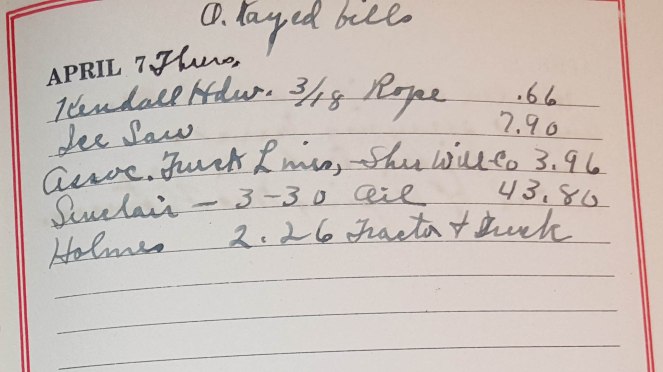 O. Payed bills
APRIL 7 Thurs.
Kendall Hdw. 3/18 Rope .66
Ice Saw 7.90
Assoc. Truck Lines, Sher Will Co 3.96
Sinclair - 3-30 Oil 43.80
Holmes 2.26 Tractor + Truck